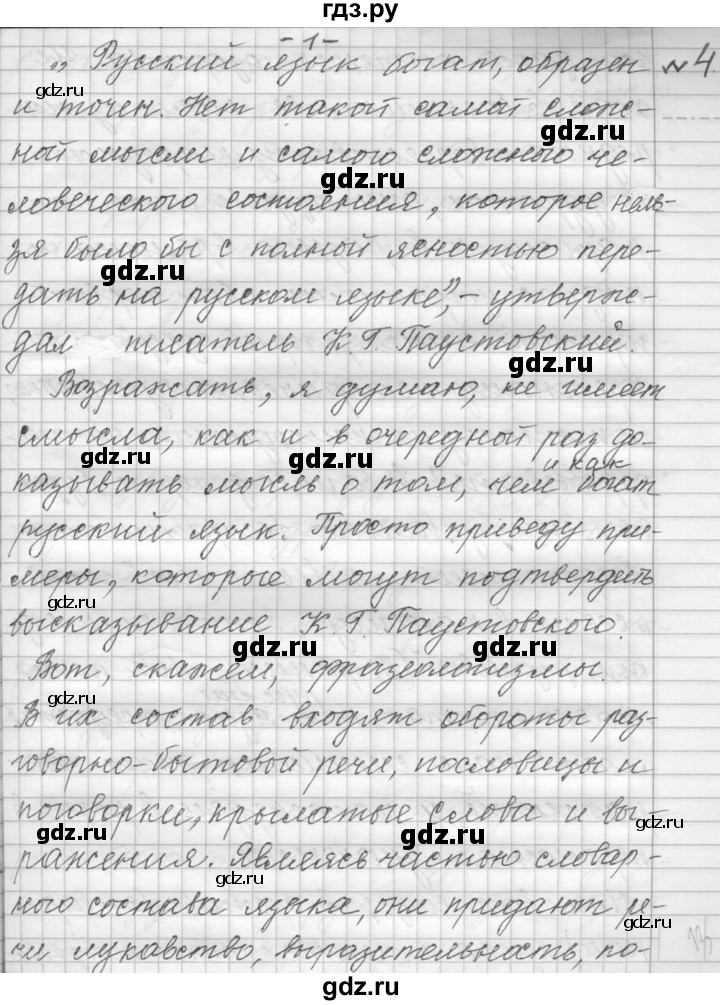 гдз.ру
-1-
„Русский язык богат, образен
№4
и точен. Нет такой самой слож-
gdz.ru
ной мысли и самого сложного че-
gdz.ru
ловеческого состояния, которое нель-
зя было бы с полной ясностью пере-
gdz.ru
дать на русском языке", - утверж-
дал писатель К. Г. Паустовский.
gdz.ru
Возражать, я думаю, не имеет
смысла, как и в очередной раз до-
gdz.ru gdz.ru
и как
казывать мысль о том, чем богат
русский язык. Просто приведу при-
меры, которые могут подтвердить
gdz.ru
высказывание К. Г. Паустовского.
gdz.ru gdz.ru
Вот, скажем, фразеологизмы.
В их состав входят обороты раз-
говорно-бытовой речи, пословицы и
поговорки, крылатые слова и вы-
gdz.ru gdz.ru gdz.ru
ражения. Являясь частью словар-
gdz.ru
ного состава языка, они придают ре-
чи лукавство, выразительность, по-
gdz.ru gdz.ru